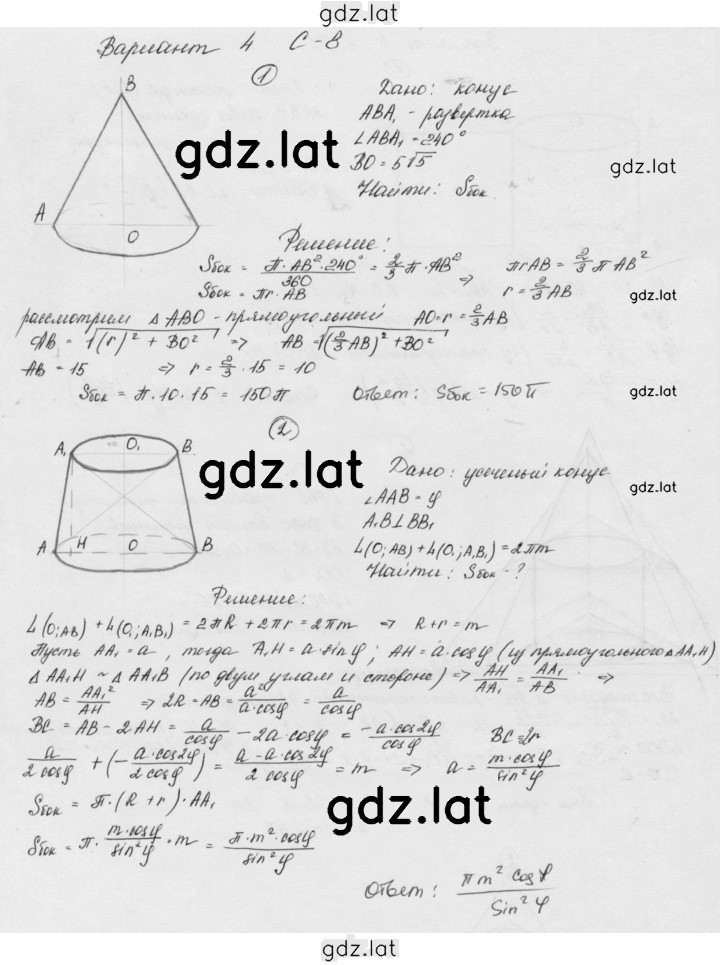 gdz.lat
Вариант 4 С-8
1
B
A
O
Дано: конус
ABA₁ - развертка
∠ABA₁ = 240°
BO = 5√5
Найти: Sбок.
gdz.lat
gdz.lat
Решение:
Sбок = π·AB²·240°/360 = 2/3 π·AB² ⇒ πrAB = 2/3 πAB²
Sбок = πr·AB r = 2/3 AB
gdz.lat
рассмотрим △ABO - прямоугольный AO=r=2/3 AB
AB = √((r)² + BO²) ⇒ AB = √((2/3 AB)² + BO²)
AB = 15 ⇒ r = 2/3 · 15 = 10
Sбок = π·10·15 = 150π Ответ: Sбок = 150π
gdz.lat
2
A₁ O₁ B
A H O B
gdz.lat
Дано: усеченый конус
∠AAB = φ
A₁B⊥BB₁
L(O; AB) + L(O₁; A₁B₁) = 2πm
Найти: Sбок - ?
gdz.lat
Решение:
L(O; AB) + L(O₁; A₁B₁) = 2πR + 2πr = 2πm ⇒ R+r = m
Пусть AA₁ = a, тогда A₁H = a·sinφ; AH = a·cosφ (из прямоугольного △AA₁H)
△AA₁H ~ △AA₁B (по двум углам и стороне) ⇒ AH/AA₁ = AA₁/AB ⇒
AB = AA₁²/AH ⇒ 2R = AB = a²/a·cosφ = a/cosφ
BC = AB - 2AH = a/cosφ - 2a·cosφ = -a·cos2φ/cosφ BC=2r
a/2cosφ + (-a·cos2φ/2cosφ) = a-a·cos2φ/2cosφ = m ⇒ a = m·cosφ/sin²φ
gdz.lat
Sбок = π·(R+r)·AA₁
gdz.lat
Sбок = π· m·cosφ/sin²φ ·m = π·m²·cosφ/sin²φ
Ответ: πm² cosφ/Sin²φ
gdz.lat